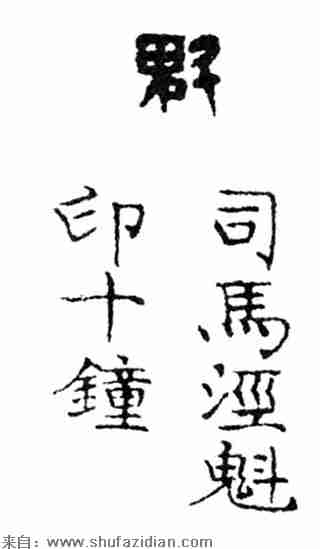 司馬涇魁
印十鐘
来自：www.shufazidian.com